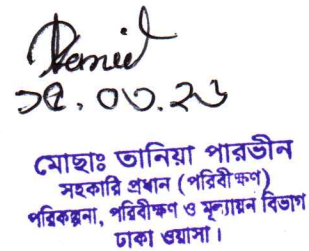 ১৫.০৩.২৬
মোছাঃ তানিয়া পারভীন
সহকারি প্রধান (পরিবীক্ষণ)
পরিকল্পনা, পরিবীক্ষণ ও মূল্যায়ন বিভাগ
ঢাকা ওয়াসা।